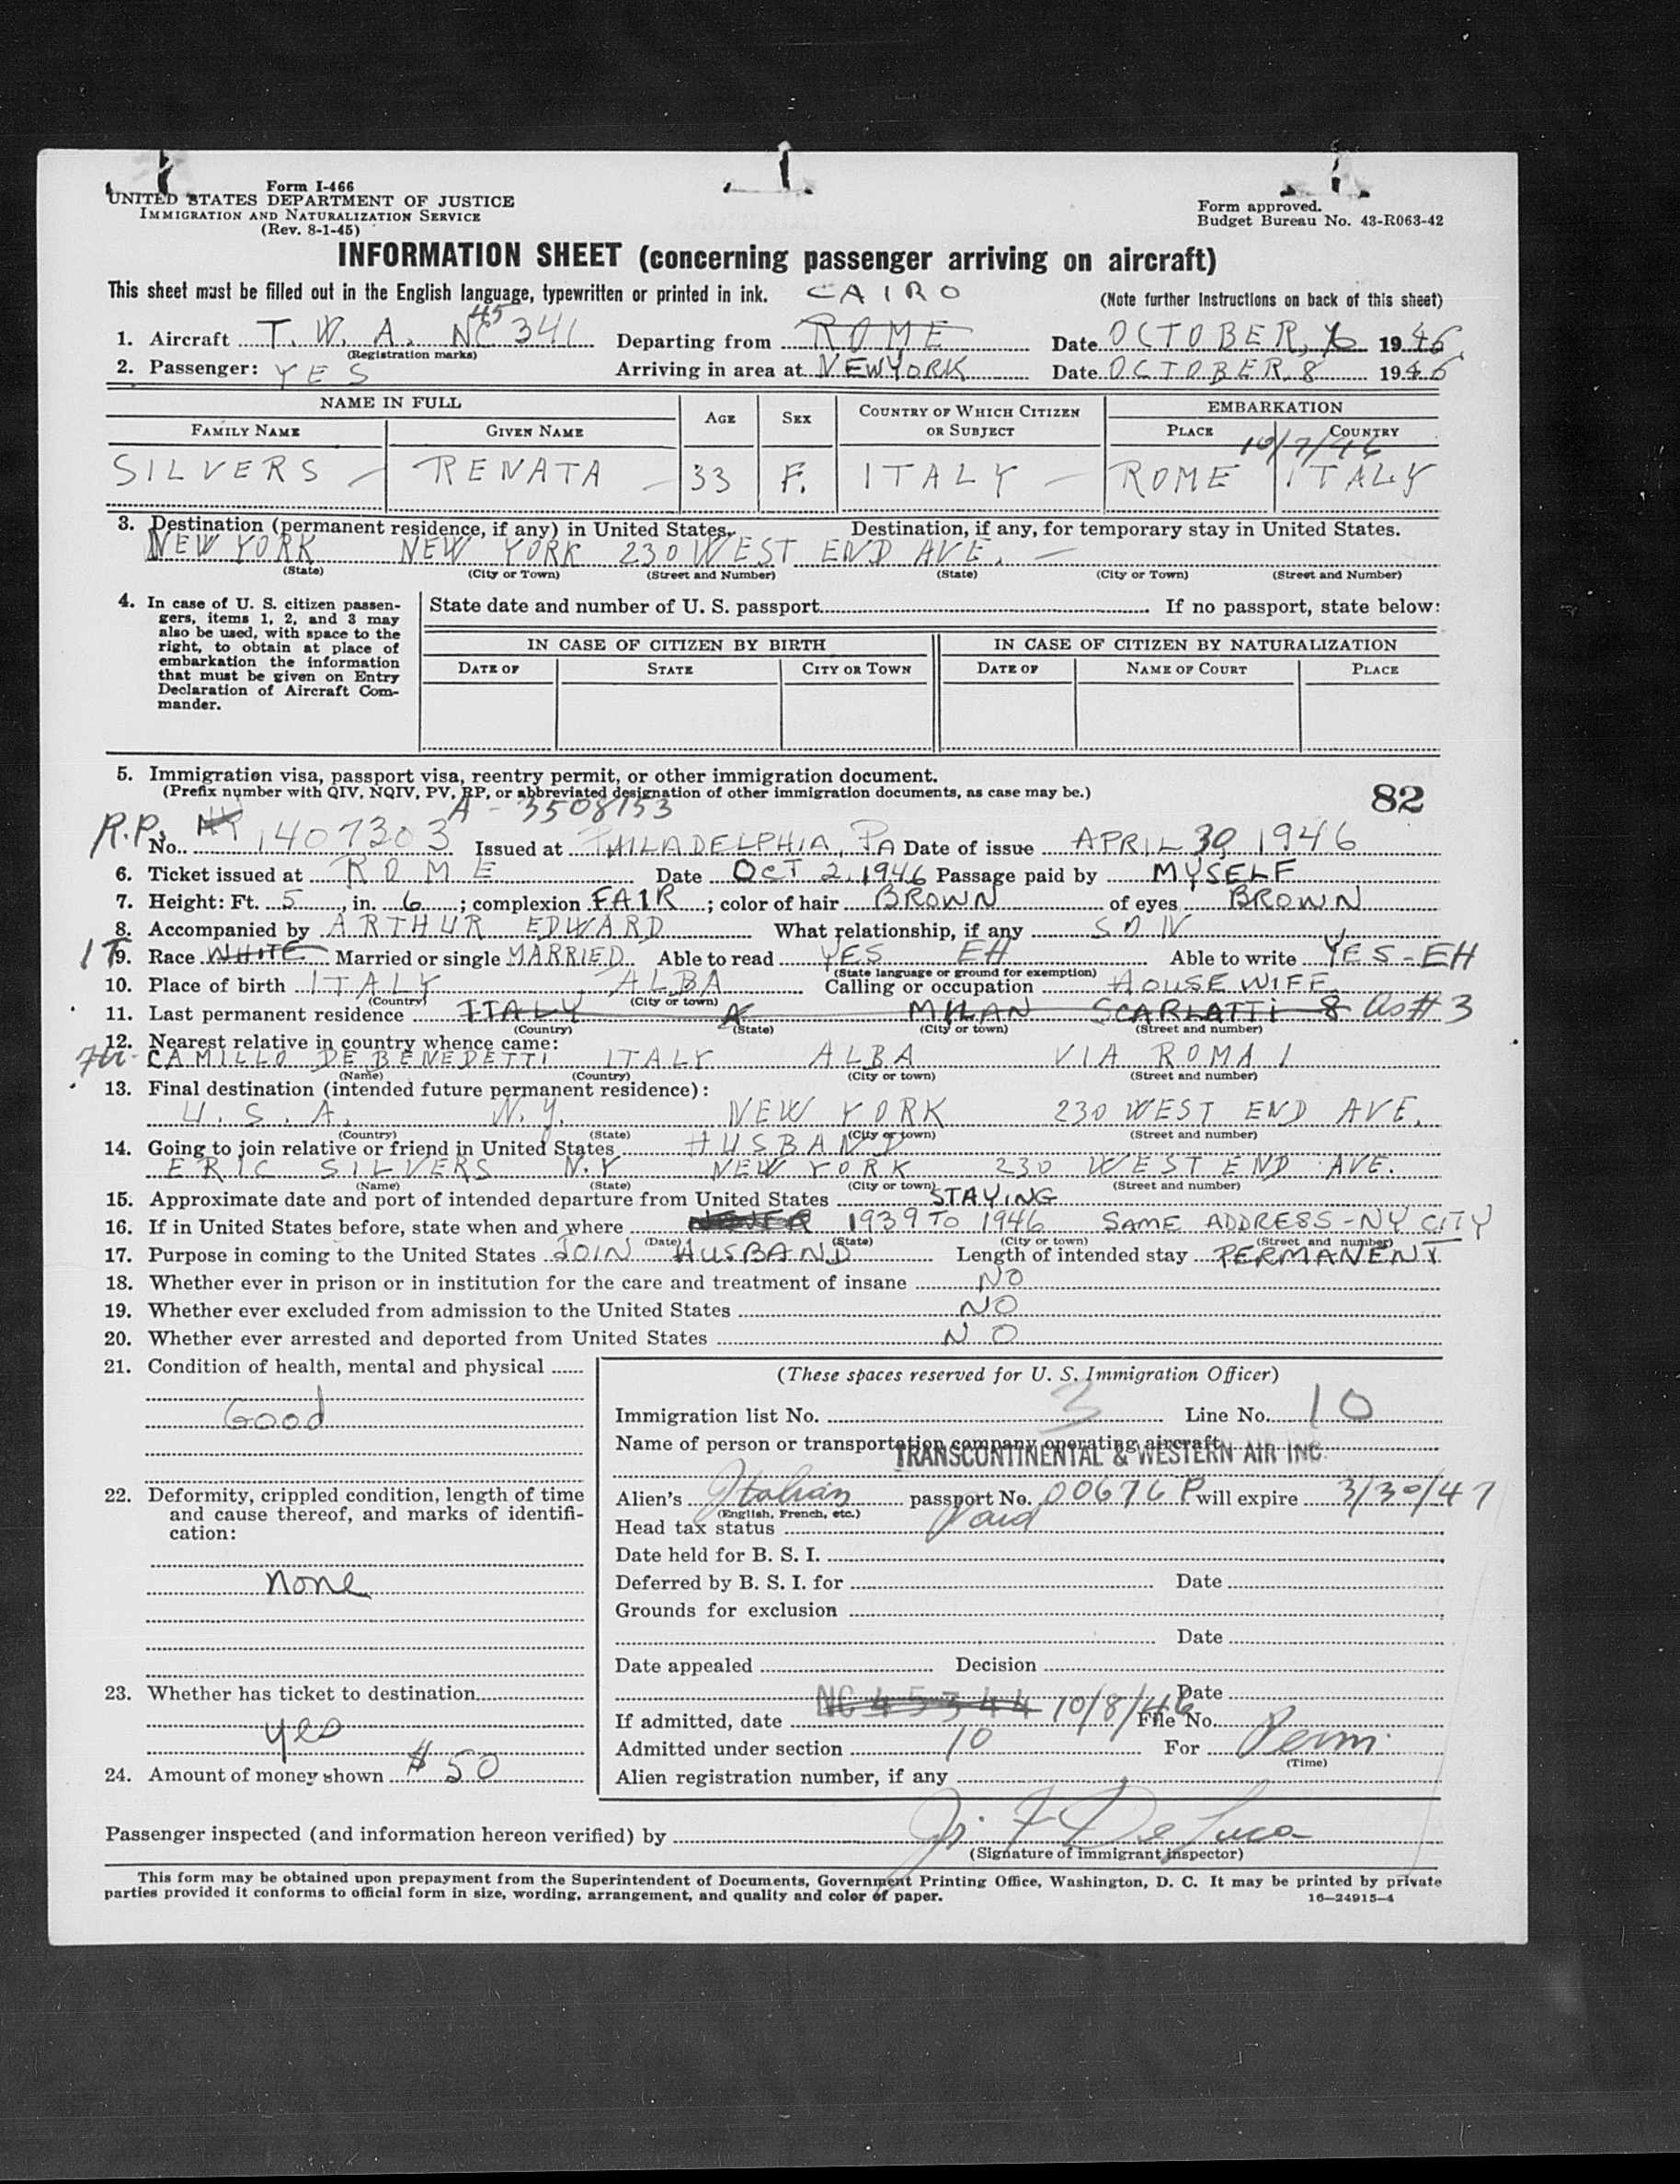 Form I-466
UNITED STATES DEPARTMENT OF JUSTICE
IMMIGRATION AND NATURALIZATION SERVICE
(Rev. 8-1-45)
Form approved.
Budget Bureau No. 43-R063-42
INFORMATION SHEET (concerning passenger arriving on aircraft)
This sheet must be filled out in the English language, typewritten or printed in ink. CAIRO (Note further Instructions on back of this sheet)
45
1. Aircraft T. W. A. NC 341 Departing from ROME Date OCTOBER, 6 1946
(Registration marks)
2. Passenger: YES Arriving in area at NEW YORK Date OCTOBER 8 1946
NAME IN FULL AGE SEX COUNTRY OF WHICH CITIZEN OR SUBJECT EMBARKATION
FAMILY NAME GIVEN NAME PLACE COUNTRY
10/7/46
SILVERS RENATA 33 F. ITALY ROME ITALY
3. Destination (permanent residence, if any) in United States. Destination, if any, for temporary stay in United States.
NEW YORK NEW YORK 230 WEST END AVE.
(State) (City or Town) (Street and Number) (State) (City or Town) (Street and Number)
4. In case of U. S. citizen passengers, items 1, 2, and 3 may also be used, with space to the right, to obtain at place of embarkation the information that must be given on Entry Declaration of Aircraft Commander.
State date and number of U. S. passport If no passport, state below:
IN CASE OF CITIZEN BY BIRTH IN CASE OF CITIZEN BY NATURALIZATION
DATE OF STATE CITY OR TOWN DATE OF NAME OF COURT PLACE
5. Immigration visa, passport visa, reentry permit, or other immigration document.
(Prefix number with QIV, NQIV, PV, RP, or abbreviated designation of other immigration documents, as case may be.) 82
A - 3508153
R.P. No. 1407303 Issued at PHILADELPHIA, PA Date of issue APRIL 30, 1946
6. Ticket issued at ROME Date OCT 2, 1946 Passage paid by MYSELF
7. Height: Ft. 5, in. 6; complexion FAIR; color of hair BROWN of eyes BROWN
8. Accompanied by ARTHUR EDWARD What relationship, if any SON
9. Race WHITE Married or single MARRIED Able to read YES EH Able to write YES-EH
(State language or ground for exemption)
10. Place of birth ITALY ALBA Calling or occupation HOUSEWIFE
(Country) (City or town)
11. Last permanent residence ITALY MILAN SCARLATTI 8 as #3
(Country) (State) (City or town) (Street and number)
12. Nearest relative in country whence came:
CAMILLO DEBENEDETTI ITALY ALBA VIA ROMA 1
(Name) (Country) (City or town) (Street and number)
13. Final destination (intended future permanent residence):
U. S. A. N. Y. NEW YORK 230 WEST END AVE.
(Country) (State) (City or town) (Street and number)
14. Going to join relative or friend in United States HUSBAND
ERIC SILVERS N.Y NEW YORK 230 WEST END AVE.
(Name) (State) (City or town) (Street and number)
15. Approximate date and port of intended departure from United States STAYING
16. If in United States before, state when and where NEVER 1939 TO 1946 SAME ADDRESS-NY CITY
(Date) (State) (City or town) (Street and number)
17. Purpose in coming to the United States JOIN HUSBAND Length of intended stay PERMANENT
18. Whether ever in prison or in institution for the care and treatment of insane NO
19. Whether ever excluded from admission to the United States NO
20. Whether ever arrested and deported from United States NO
21. Condition of health, mental and physical
Good
22. Deformity, crippled condition, length of time and cause thereof, and marks of identification:
none
23. Whether has ticket to destination
yes
24. Amount of money shown $50
(These spaces reserved for U. S. Immigration Officer)
Immigration list No. 3 Line No. 10
Name of person or transportation company operating aircraft
TRANSCONTINENTAL & WESTERN AIR INC.
Alien's Italian passport No. 00676 P will expire 3/30/47
(English, French, etc.)
Head tax status Paid
Date held for B. S. I.
Deferred by B. S. I. for Date
Grounds for exclusion
Date
Date appealed Decision
NC 45344 Date
If admitted, date 10/8/46 File No.
Admitted under section 10 For Perm.
(Time)
Alien registration number, if any
Passenger inspected (and information hereon verified) by De Luca
(Signature of immigrant inspector)
This form may be obtained upon prepayment from the Superintendent of Documents, Government Printing Office, Washington, D. C. It may be printed by private
parties provided it conforms to official form in size, wording, arrangement, and quality and color of paper. 16—24915-4